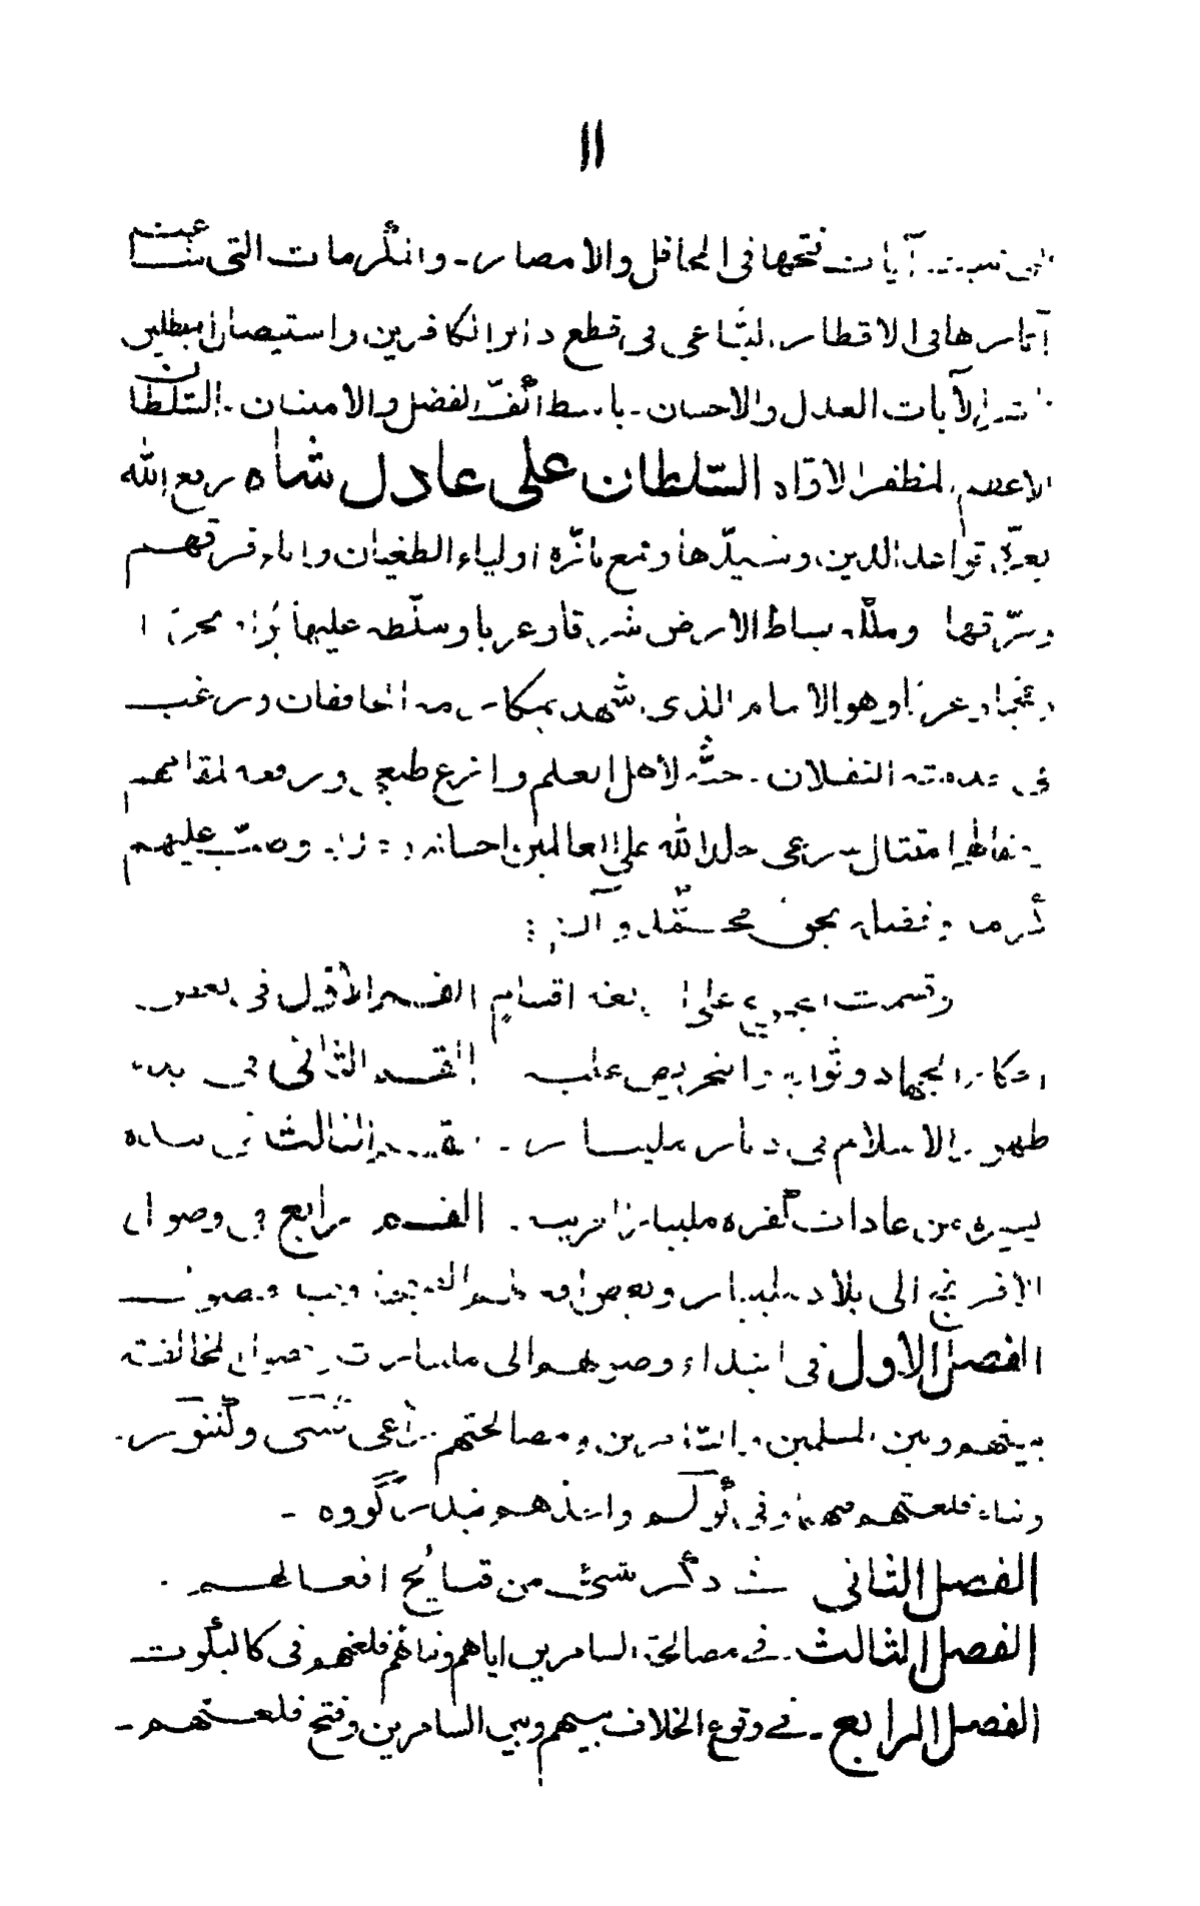 ١١
آيات فتحها في المحافل والامصار - والمكرمات التي شاعت
آثارها في الاقطار الساعي في قطع دابر الكافرين واستيصال المبطلين
لآيات العدل والاحسان - باسط اكف الفضل والامتنان - السلطان
الاعظم المظفر الاوّاه السّلطان على عادل شاه رفع الله
بعزّه قواعد الدين وشيّدها وقمع اولياء الطغيان وفرقهم
ومزّقها وملّكه بساط الارض شرقا وغربا وسلّطه عليها برا وبحرا
وعربا وهو الامام الذى شهد بمكارمه الخافقان ورغب
في خدمته الثقلان - حبّه لاهل العلم ورفعه لمقامهم
الله على العالمين احسانه وصبّ عليهم
كرمه وفضله بحق محمّد وآله
وقسمت المجموع على اربعة اقسام القسم الأوّل في بعض
احكام الجهاد وثوابه والتحريض عليه القسم الثاني في بدء
ظهور الاسلام في ديار مليبار - القسم الثالث في نبذة
يسيرة من عادات كفرة مليبار الغريبة - القسم الرابع في وصول
الافرنج الى بلاد مليبار وبعض افعالهم القبيحة وفيه فصول
الفصل الاول في ابتداء وصولهم الى مليبار وحصول المخالفة
بينهم وبين المسلمين والسّامرين ومصالحتهم راعى كشى وكننور
وبناء قلعتهم فيهما وفي كولم واخذهم بندر گووه -
الفصل الثاني في ذكر شئ من قبايح افعالهم .
الفصل الثالث - في مصالحة السامرين اياهم وبنائهم قلعتهم في كاليكوت
الفصل الرابع - في وقوع الخلاف بينهم وبين السامرين وفتح قلعتهم -